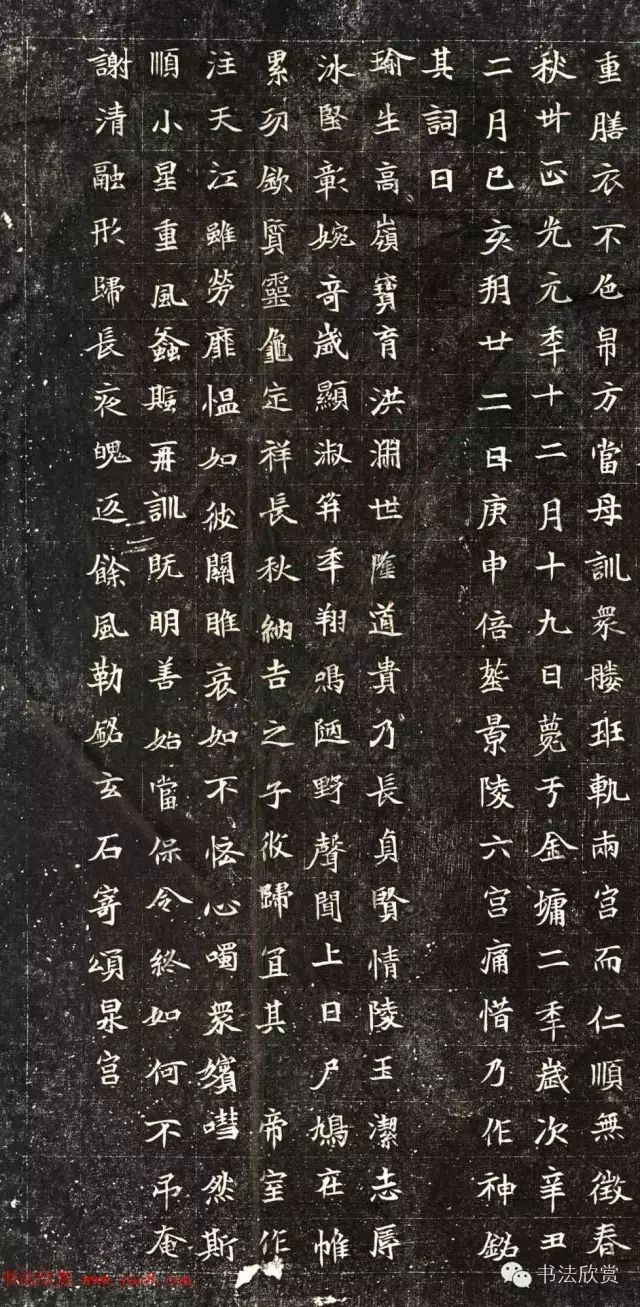 重膳衣不色帛方當母訓眾媵班軌兩宮而仁順無徵春
秋卅正光元秊十二月十九日薨于金墉二秊歲次辛丑
二月己亥朔廿二日庚申倍塟景陵六宮痛惜乃作神銘
其詞曰
瑜生高嶺寶育洪瀾世隆道貴乃長貞賢情陵玉潔志厚
冰堅彰婉奇歲顯淑笄秊翔鳴陋野聲聞上日尸鳩在帷
累勿欽質靈龜定祥長秋納吉之子攸歸宜其 帝室作
注天江雖勞靡慍如彼關雎哀如不悋心噣眾嬪嘒然斯
順小星重風螽斯再訓既明善始當保令終如何不弔奄
謝清融形歸長夜魄返餘風勒銘玄石寄頌泉宮
书法欣赏
书法欣赏